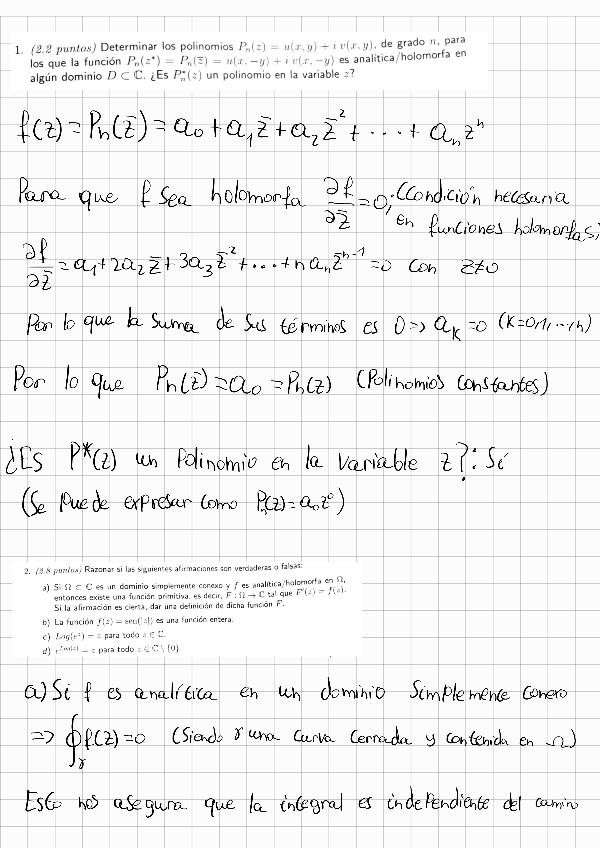 1. (2.2 puntos) Determinar los polinomios Pₙ(z) = u(x, y) + ı v(x, y), de grado n, para
los que la función Pₙ(z*) = Pₙ(z̅) = u(x, −y) + ı v(x, −y) es analítica/holomorfa en
algún dominio D ⊂ ℂ. ¿Es Pₙ*(z) un polinomio en la variable z?
f(z) = Pₙ(z̅) = a₀ + a₁z̅ + a₂z̅² + ··· + aₙzⁿ
Para que f sea holomorfa ∂f/∂z̅ = 0; (Condición necesaria
en funciones holomorfas)
∂f/∂z̅ = a₁ + 2a₂z̅ + 3a₃z̅² + ··· + n aₙz̅ⁿ⁻¹ = 0 con z≠0
Por lo que la suma de sus términos es 0 => aₖ = 0 (k=0,1,...,n)
Por lo que Pₙ(z̅) = a₀ = Pₙ(z) (Polinomios constantes)
¿Es P*(z) un Polinomio en la variable z?: Sí
(Se puede expresar como Pₙ(z) = a₀z⁰)
2. (2.8 puntos) Razonar si las siguientes afirmaciones son verdaderas o falsas:
a) Si Ω ⊂ ℂ es un dominio simplemente conexo y f es analítica/holomorfa en Ω,
entonces existe una función primitiva, es decir, F : Ω → ℂ tal que F'(z) = f(z).
Si la afirmación es cierta, dar una definición de dicha función F.
b) La función f(z) = sen(|z|) es una función entera.
c) Log(eᶻ) = z para todo z ∈ ℂ.
d) e^Log(z) = z para todo z ∈ ℂ \ {0}.
a) Si f es analítica en un dominio simplemente conexo
=> ∮_γ f(z) = 0 (Siendo γ una curva cerrada y contenida en Ω)
Esto nos asegura que la integral es independiente del camino